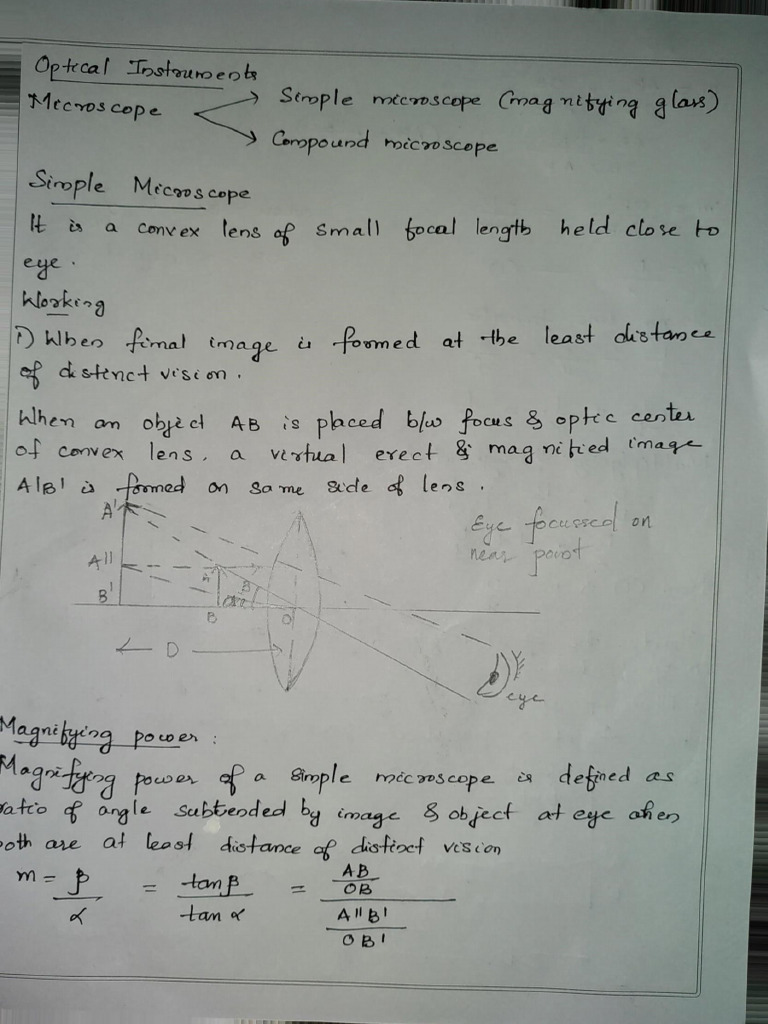 Optical Instruments
Microscope
Simple microscope (magnifying glass)
Compound microscope
Simple Microscope
It is a convex lens of small focal length held close to
eye.
Working
1) When final image is formed at the least distance
of distinct vision.
When an object AB is placed b/w focus & optic center
of convex lens, a virtual erect & magnified image
A'B' is formed on same side of lens.
A'
Eye focussed on
near point
A''
A
B'
β
α
B
O
D
eye
Magnifying power:
Magnifying power of a simple microscope is defined as
ratio of angle subtended by image & object at eye when
both are at least distance of distinct vision
m = β/α = tanβ/tanα = (AB/OB)/(A''B'/OB')